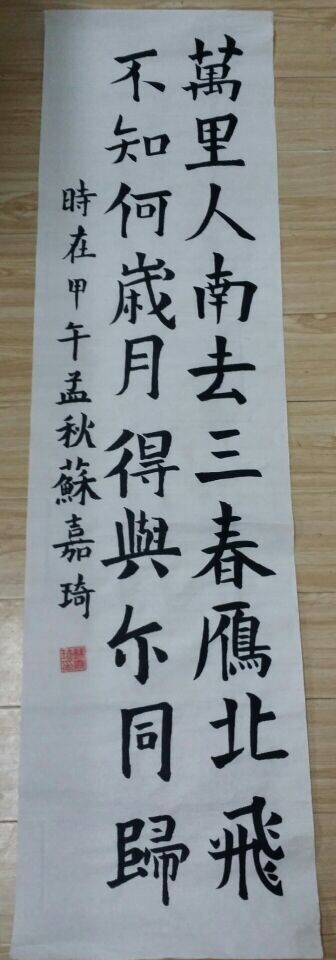 萬里人南去三春鴈北飛
不知何歲月得與尒同歸
時在甲午孟秋蘇嘉琦